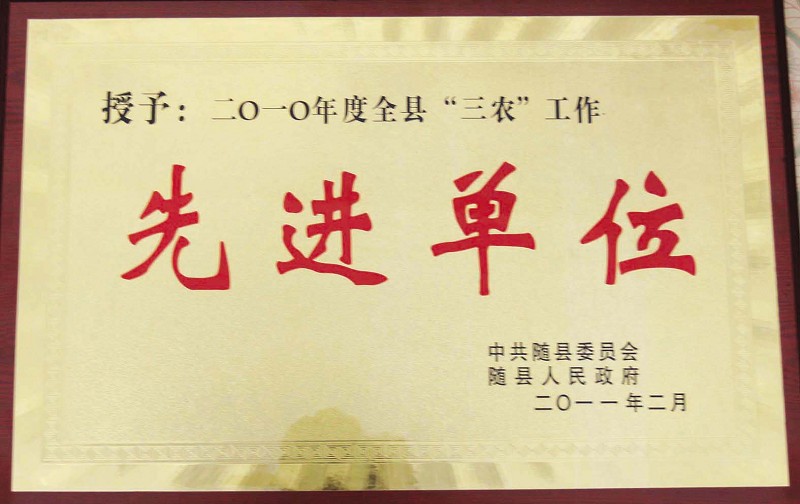 授予：二〇一〇年度全县“三农”工作
先进单位
中共随县委员会
随县人民政府
二〇一一年二月